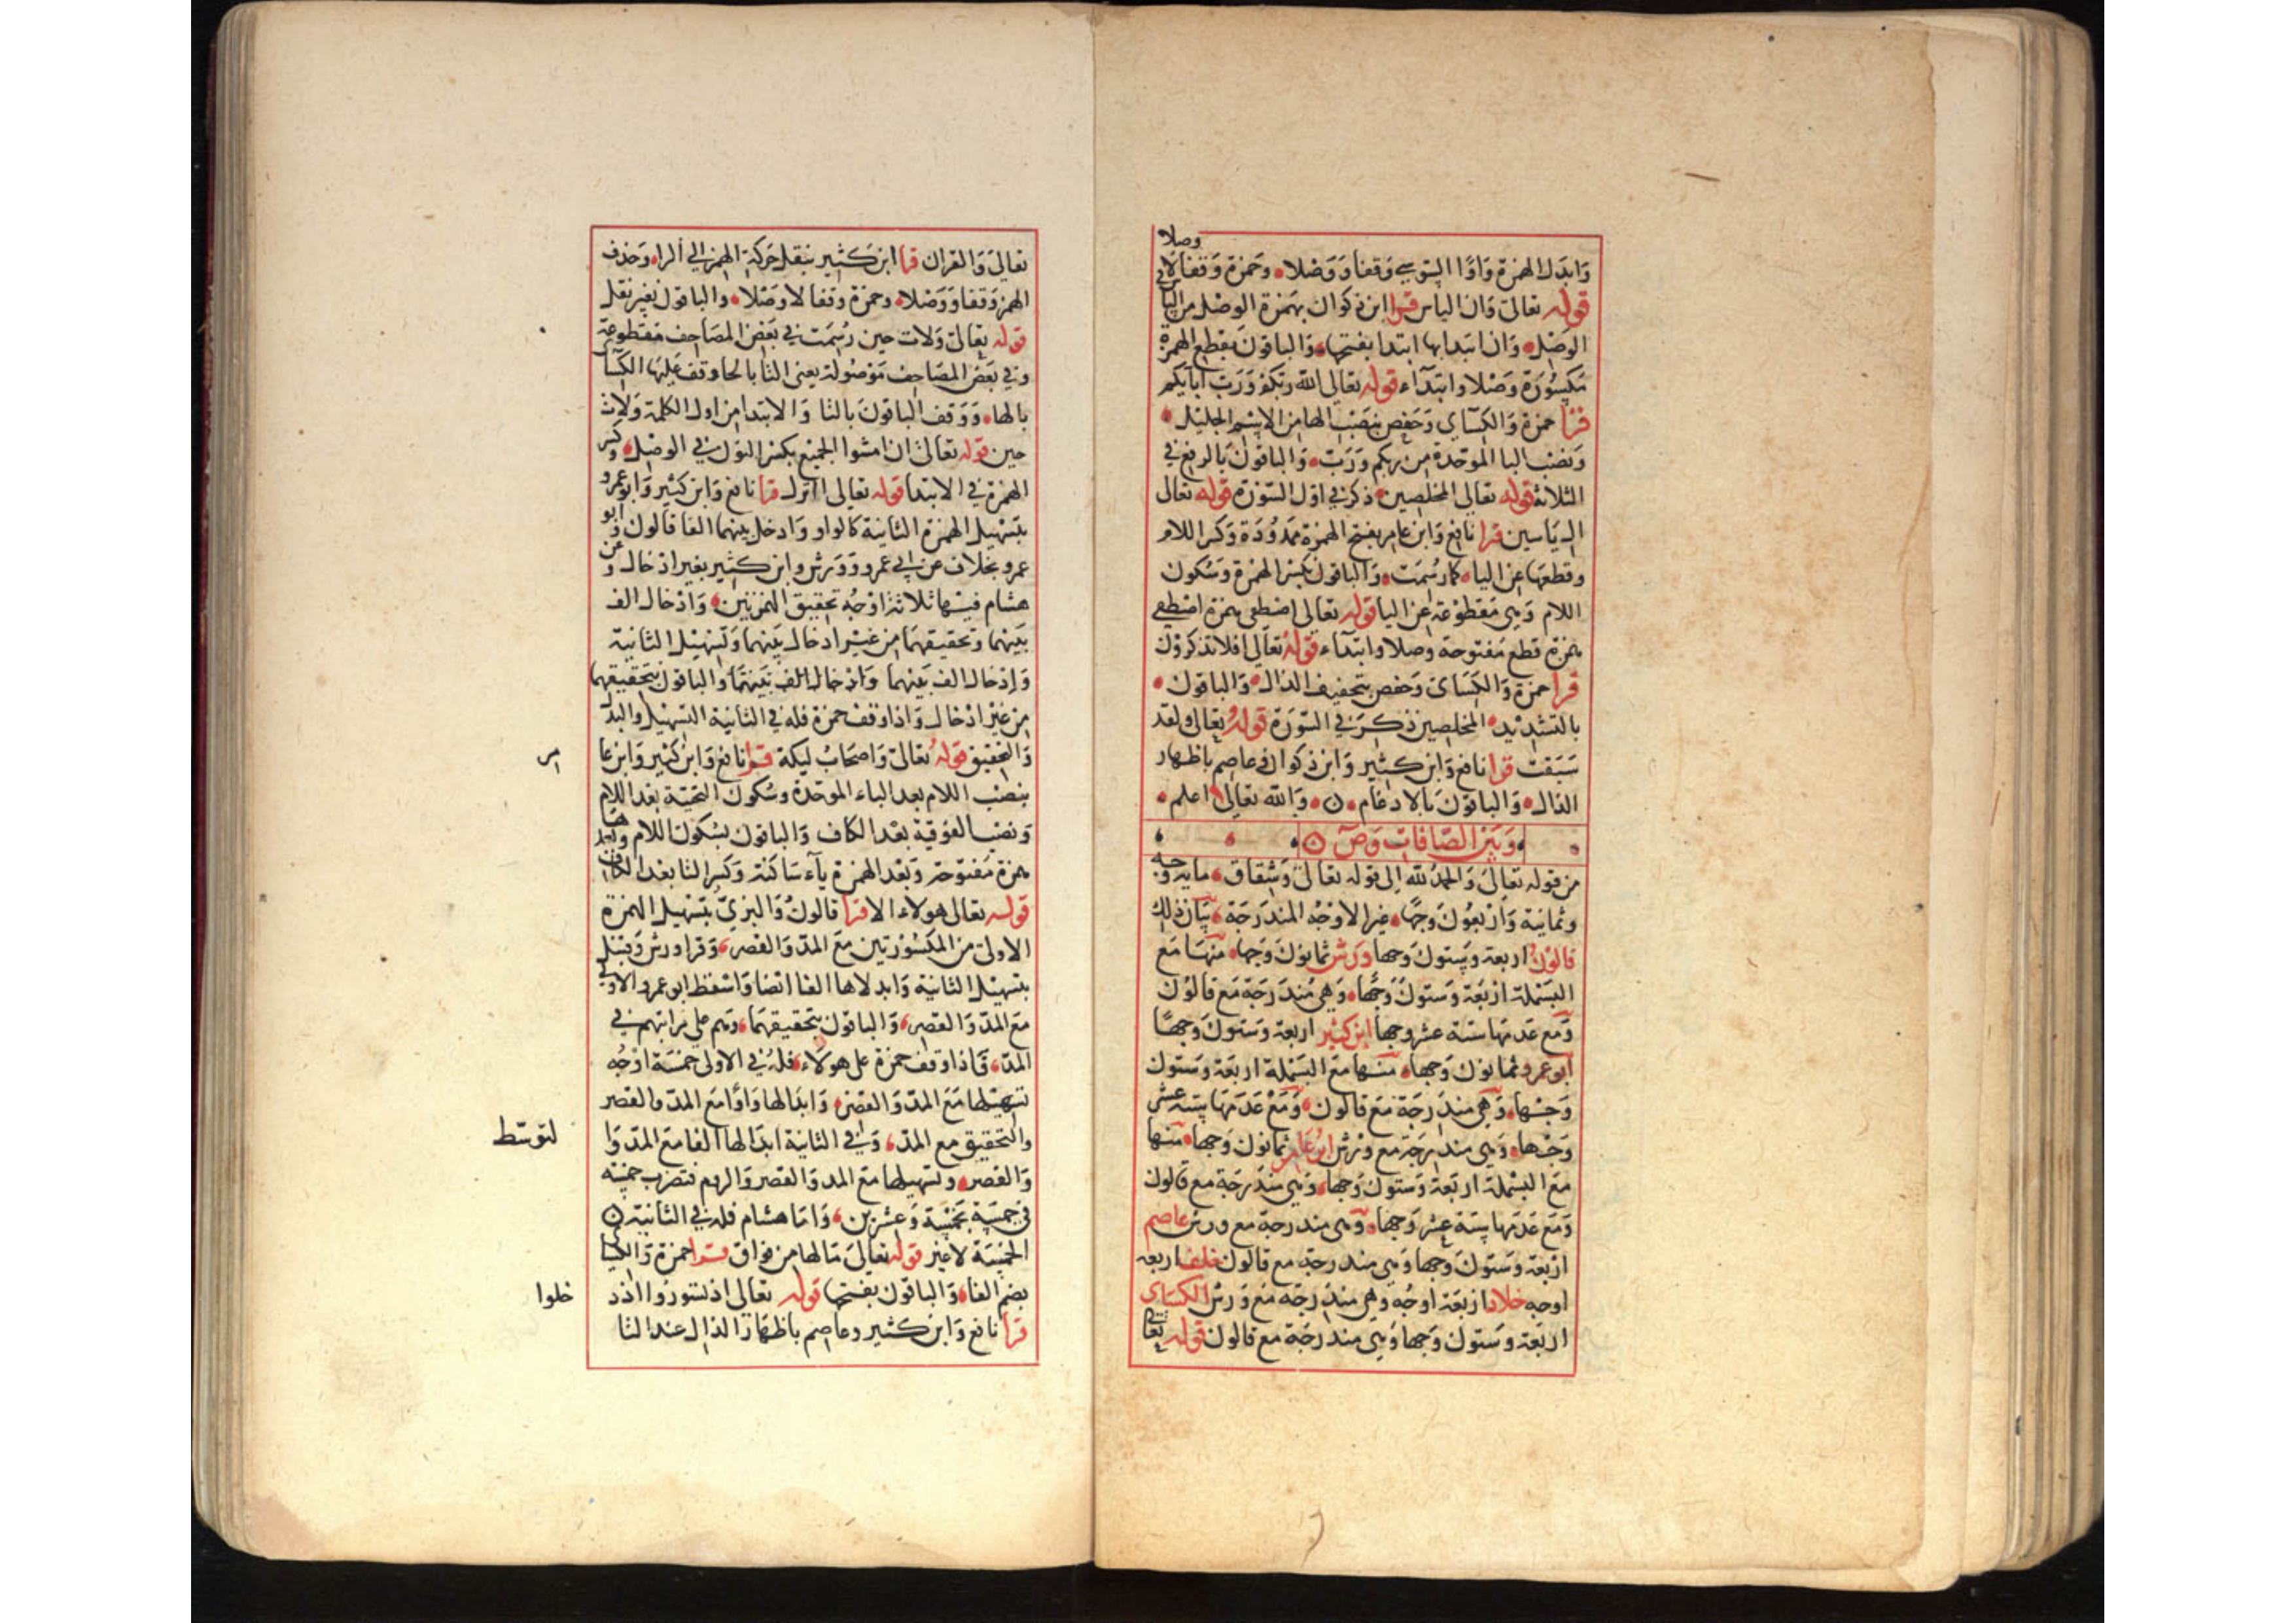 وصلا
وابدل الهمزة واوا السوسي وقفا ووصلا وحمزة وقفا لا في
قوله تعالى وان الياس قرا ابن ذكوان بهمزة الوصل من اليا
الوصل وان ابتدا بها ابتدا بفتحها والباقون بقطع الهمزة
مكسورة وصلا وابتداء قوله تعالى الله ربكم ورب ابايكم
قرا حمزة والكساي وحفص بنصب الها من الاسم الجليل
ونصب البا الموحدة من ربكم ورب والباقون بالرفع في
الثلاثة قوله تعالى المخلصين ذكر في اول السورة قوله تعالى
ال ياسين قرا نافع وابن عامر بفتح الهمزة ممدودة وكسر اللام
وقطعها عن اليا كما رسمت والباقون بكسر الهمزة وسكون
اللام وهي مقطوعة عن اليا قوله تعالى اصطفى بهمزة اصطفى
بهمزة قطع مفتوحة وصلا وابتداء قوله تعالى افلا تذكرون
قرا حمزة والكساى وحفص بتخفيف الذال والباقون
بالتشديد المخلصين ذكر في السورة قوله تعالى ولقد
سبقت قرا نافع وابن كثير وابن ذكوان وعاصم باظهار
الدال والباقون بالادغام ن والله تعالى اعلم
وبين الصافات وص
من قوله تعالى والحمد لله الى قوله تعالى وشقاق ماية وجه
وثمانية واربعون وجها غير الاوجه المندرجة بيان ذلك
قالون اربعة وستون وجها ورش ثمانون وجها منها مع
البسملة اربعة وستون وجها وهي مندرجة مع قالون
ومع عدمها ستة عشر وجها ابن كثير اربعة وستون وجها
ابو عمرو ثمانون وجها منها مع البسملة اربعة وستون
وجها وهي مندرجة مع قالون ومع عدمها ستة عشر
وجها وهي مندرجة مع ورش ابن عامر ثمانون وجها منها
مع البسملة اربعة وستون وجها وهي مندرجة مع قالون
ومع عدمها ستة عشر وجها وهي مندرجة مع ورش عاصم
اربعة وستون وجها وهي مندرجة مع قالون خلف اربعة
اوجه خلاد اربعة اوجه وهي مندرجة مع ورش الكساي
اربعة وستون وجها وهي مندرجة مع قالون قوله تعا
تعالى والقران قرا ابن كثير بنقل حركة الهمزة الي الراء وحذف
الهمز وقفا ووصلا وحمزة وقفا لا وصلا والباقون بغير نقل
قوله تعالى ولات حين رسمت في بعض المصاحف مقطوعة
وفي بعض المصاحف موصولة يعني التا بالحا وقف عليها الكسا
بالها ووقف الباقون بالتا والابتدا من اول الكلمة ولات
حين قوله تعالى ان امشوا الجميع بكسر النون في الوصل وكسر
الهمزة في الابتدا قوله تعالى اانزل قرا نافع وابن كثير وابو عمرو
بتسهيل الهمزة الثانية كالواو وادخل بينهما الفا قالون وابو
عمرو بخلاف عن ابي عمرو وورش وابن كثير بغير ادخال وعن
هشام فيها ثلاثة اوجه تحقيق الهمزتين وادخال الف
بينهما وتحقيقهما من غير ادخال بينهما وتسهيل الثانية
وادخال الف بينهما وادخال الف بينهما والباقون بتحقيقهما
من غير ادخال واذا وقف حمزة فله في الثانية التسهيل والبدل
والتحقيق قوله تعالى واصحاب ليكة قرا نافع وابن كثير وابن عا
مر
بنصب اللام بعد الباء الموحدة وسكون التحتية بعد اللام
ونصب الفوقية بعد الكاف والباقون بسكون اللام وبعدها
همزة مفتوحة وبعد الهمزة ياء ساكنة وكسر التا بعد الكاف
قوله تعالى هولاء الا قرا قالون والبزي بتسهيل الهمزة
الاولى من المكسورتين مع المد والقصر وقرا ورش وقنبل
بتسهيل الثانية وابدلاها الفا ايضا واسقط ابو عمرو الاولى
مع المد والقصر والباقون بتحقيقهما وهم على مراتبهم في
المد فاذا وقف حمزة على هولاء فله في الاولى خمسة اوجه
تسهيلها مع المد والقصر وابدالها واوا مع المد والقصر
والتحقيق مع المد وفي الثانية ابدالها الفا مع المد وا
لتوسط
والقصر وتسهيلها مع المد والقصر والروم فتضرب خمسة
في خمسة بخمسة وعشرين واما هشام فله في الثانية
الخمسة لا غير قوله تعالى مالها من فواق قرا حمزة والكسا
بضم الفا والباقون بفتحها قوله تعالى اذ تسوروا اذ د
خلوا
قرا نافع وابن كثير وعاصم باظهار الذال عند التا